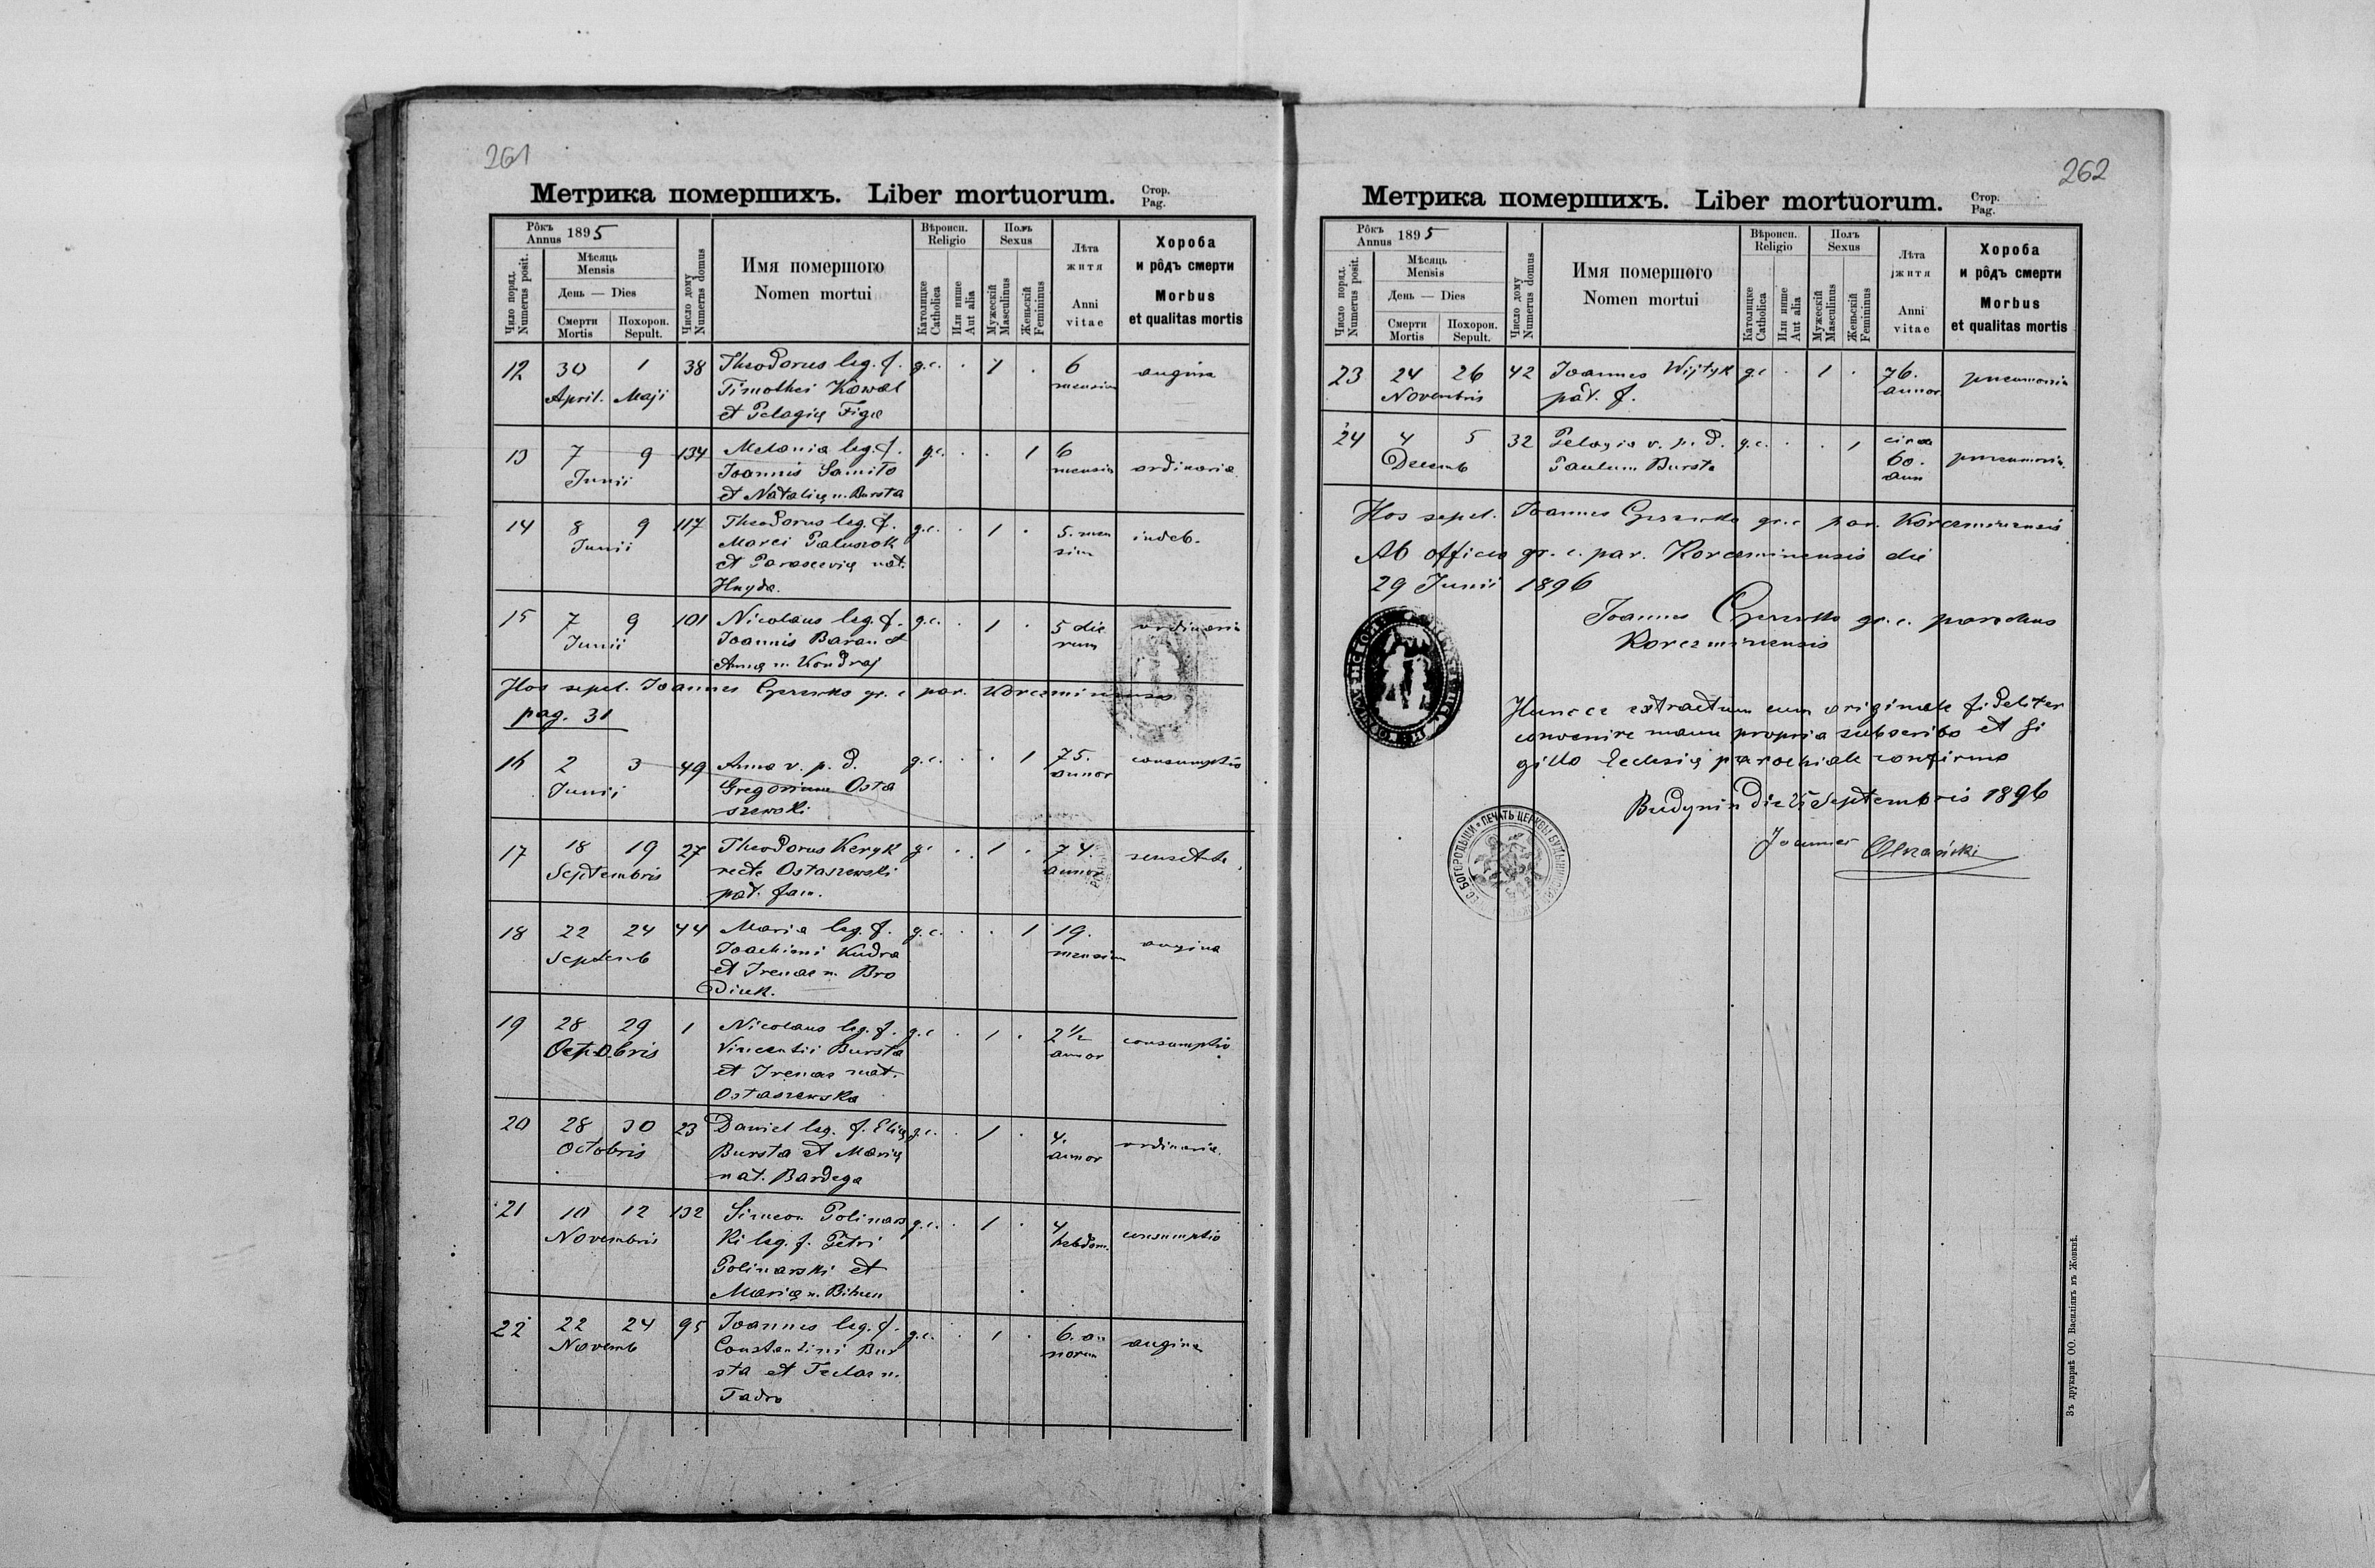 261
Метрика помершихъ. Liber mortuorum. Стор. Pag.
Рôкъ Annus 1895
Мѣсяць Mensis
День — Dies
Смерти Mortis
Похорон. Sepult.
Число поряд. Numerus posit.
Число дому Numerus domus
Имя помершого
Nomen mortui
Вѣроисп. Religio
Католицке Catholica
Или инше Aut alia
Полъ Sexus
Мужескій Masculinus
Женьскій Femininus
Лѣта житя
Anni vitae
Хороба и рôдъ смерти
Morbus et qualitas mortis
12 30 1 38 Theodorus leg. f. g.c. · 1 · 6 angina
April. Maji Timothei Kowal mensium
et Pelagię Figa
13 7 9 134 Melania leg. f. g.c. · · 1 6 ordinaria
Junii Joannis Samito mensium
et Natalię n. Bursta
14 8 9 117 Theodorus leg. f. g.c. · 1 · 5. men indeb.
Junii Marci Paluszok sium
et Parascevię nat.
Hnyda.
15 7 9 101 Nicolaus leg. f. g.c. · 1 · 5 die ordinaria
Junii Joannis Baran et rum
Annę n. Kondraj
Hos sepel. Joannes gr. c. par. Korczminensis
pag. 31
16 2 3 49 Anna v. p. d. g.c. · · 1 75. consumptio
Junii Gregorium Osta annor
szewski
17 18 19 27 Theodorus Keryk gc · 1 · 74.
Septembris recte Ostaszewski annor
pat. fam.
18 22 24 44 Maria leg. f. g.c. · · 1 19. angina
Septemb Joachimi Kudra mensium
et Irenae n. Bro
diuk.
19 28 29 1 Nicolaus leg. f. g.c · 1 · 2 1/2 consumptio
Octobris Vincentii Bursta annor
et Irenae nat.
Ostaszewska
20 28 30 23 Daniel leg. f. Elię g.c. · 1 · 4. ordinaria.
Octobris Bursta et Marię annor
nat. Bardega
21 10 12 132 Simeon Polinars g.c. · 1 · 4 consumptio
Novembris ki leg. f. Petri hebdom.
Polinarski et
Marię n.
22 22 24 95 Joannes leg. f. g.c. · 1 · 6. an angina
Novemb Constantini Bur norum
sta et Teclae n.
Fadro
262
Метрика помершихъ. Liber mortuorum. Стор. Pag.
Рôкъ Annus 1895
Мѣсяць Mensis
День — Dies
Смерти Mortis
Похорон. Sepult.
Число поряд. Numerus posit.
Число дому Numerus domus
Имя помершого
Nomen mortui
Вѣроисп. Religio
Католицке Catholica
Или инше Aut alia
Полъ Sexus
Мужескій Masculinus
Женьскій Femininus
Лѣта житя
Anni vitae
Хороба и рôдъ смерти
Morbus et qualitas mortis
23 24 26 42 Joannes Wijtyk g.c · 1 · 76. pneumonia
Novembris pat. f. annor
24 4 5 32 Pelagia v. p. d. g.c. · · 1 circa pneumonia.
Decemb Paulum Bursta 60. ann
Hos sepel. Joannes gr. c par. Korczminensis
Ab officio gr. c. par. Korczminensis die
29 Junii 1896
Joannes gr. c. parochus
Korczminensis
Huncce extractum cum originale fideliter
convenire manu propria subscribo et si
gillo Ecclesię parochiale confirmo
Budynin die Septembris 1896
Joannes
ПЕЧАТЬ ЦЕРКВЫ
БОГОРОДИЦЫ
Зъ друкарнѣ ОО. Василіянъ въ Жовквѣ.